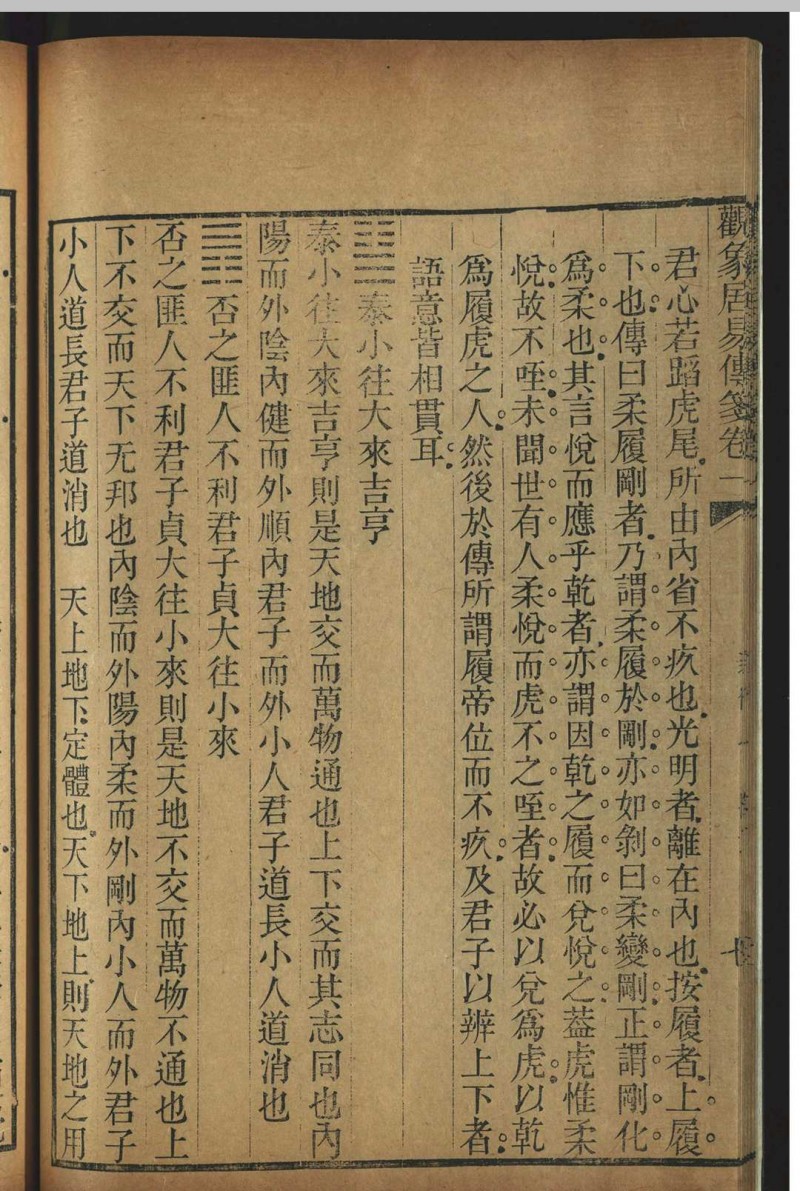 觀象居易傳箋卷一
君心若蹈虎尾所由內省不疚也光明者離在內也按履者上履
下也傳曰柔履剛者乃謂柔履於剛亦如剝曰柔變剛正謂剛化
爲柔也其言悅而應乎乾者亦謂因乾之履而兌悅之葢虎惟柔
悅故不咥未聞世有人柔悅而虎不之咥者故必以兌爲虎以乾
爲履虎之人然後於傳所謂履帝位而不疚及君子以辨上下者
語意皆相貫耳
䷊泰小往大來吉亨
泰小往大來吉亨則是天地交而萬物通也上下交而其志同也內
陽而外陰內健而外順內君子而外小人君子道長小人道消也
䷋否之匪人不利君子貞大往小來
否之匪人不利君子貞大往小來則是天地不交而萬物不通也上
下不交而天下无邦也內陰而外陽內柔而外剛內小人而外君子
小人道長君子道消也　天上地下定體也天下地上則天地之用